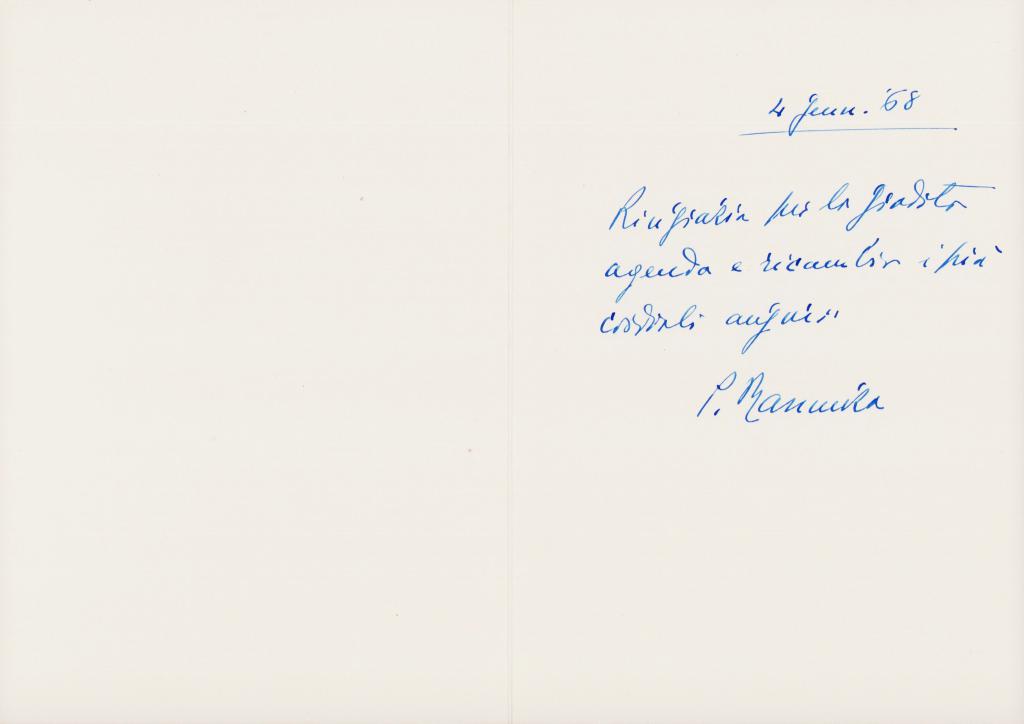 4 genn. '68
Ringrazia per la gradita
agenda e ricambia i più
cordiali auguri.
P.